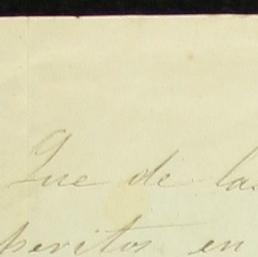 Que de las
peritos en